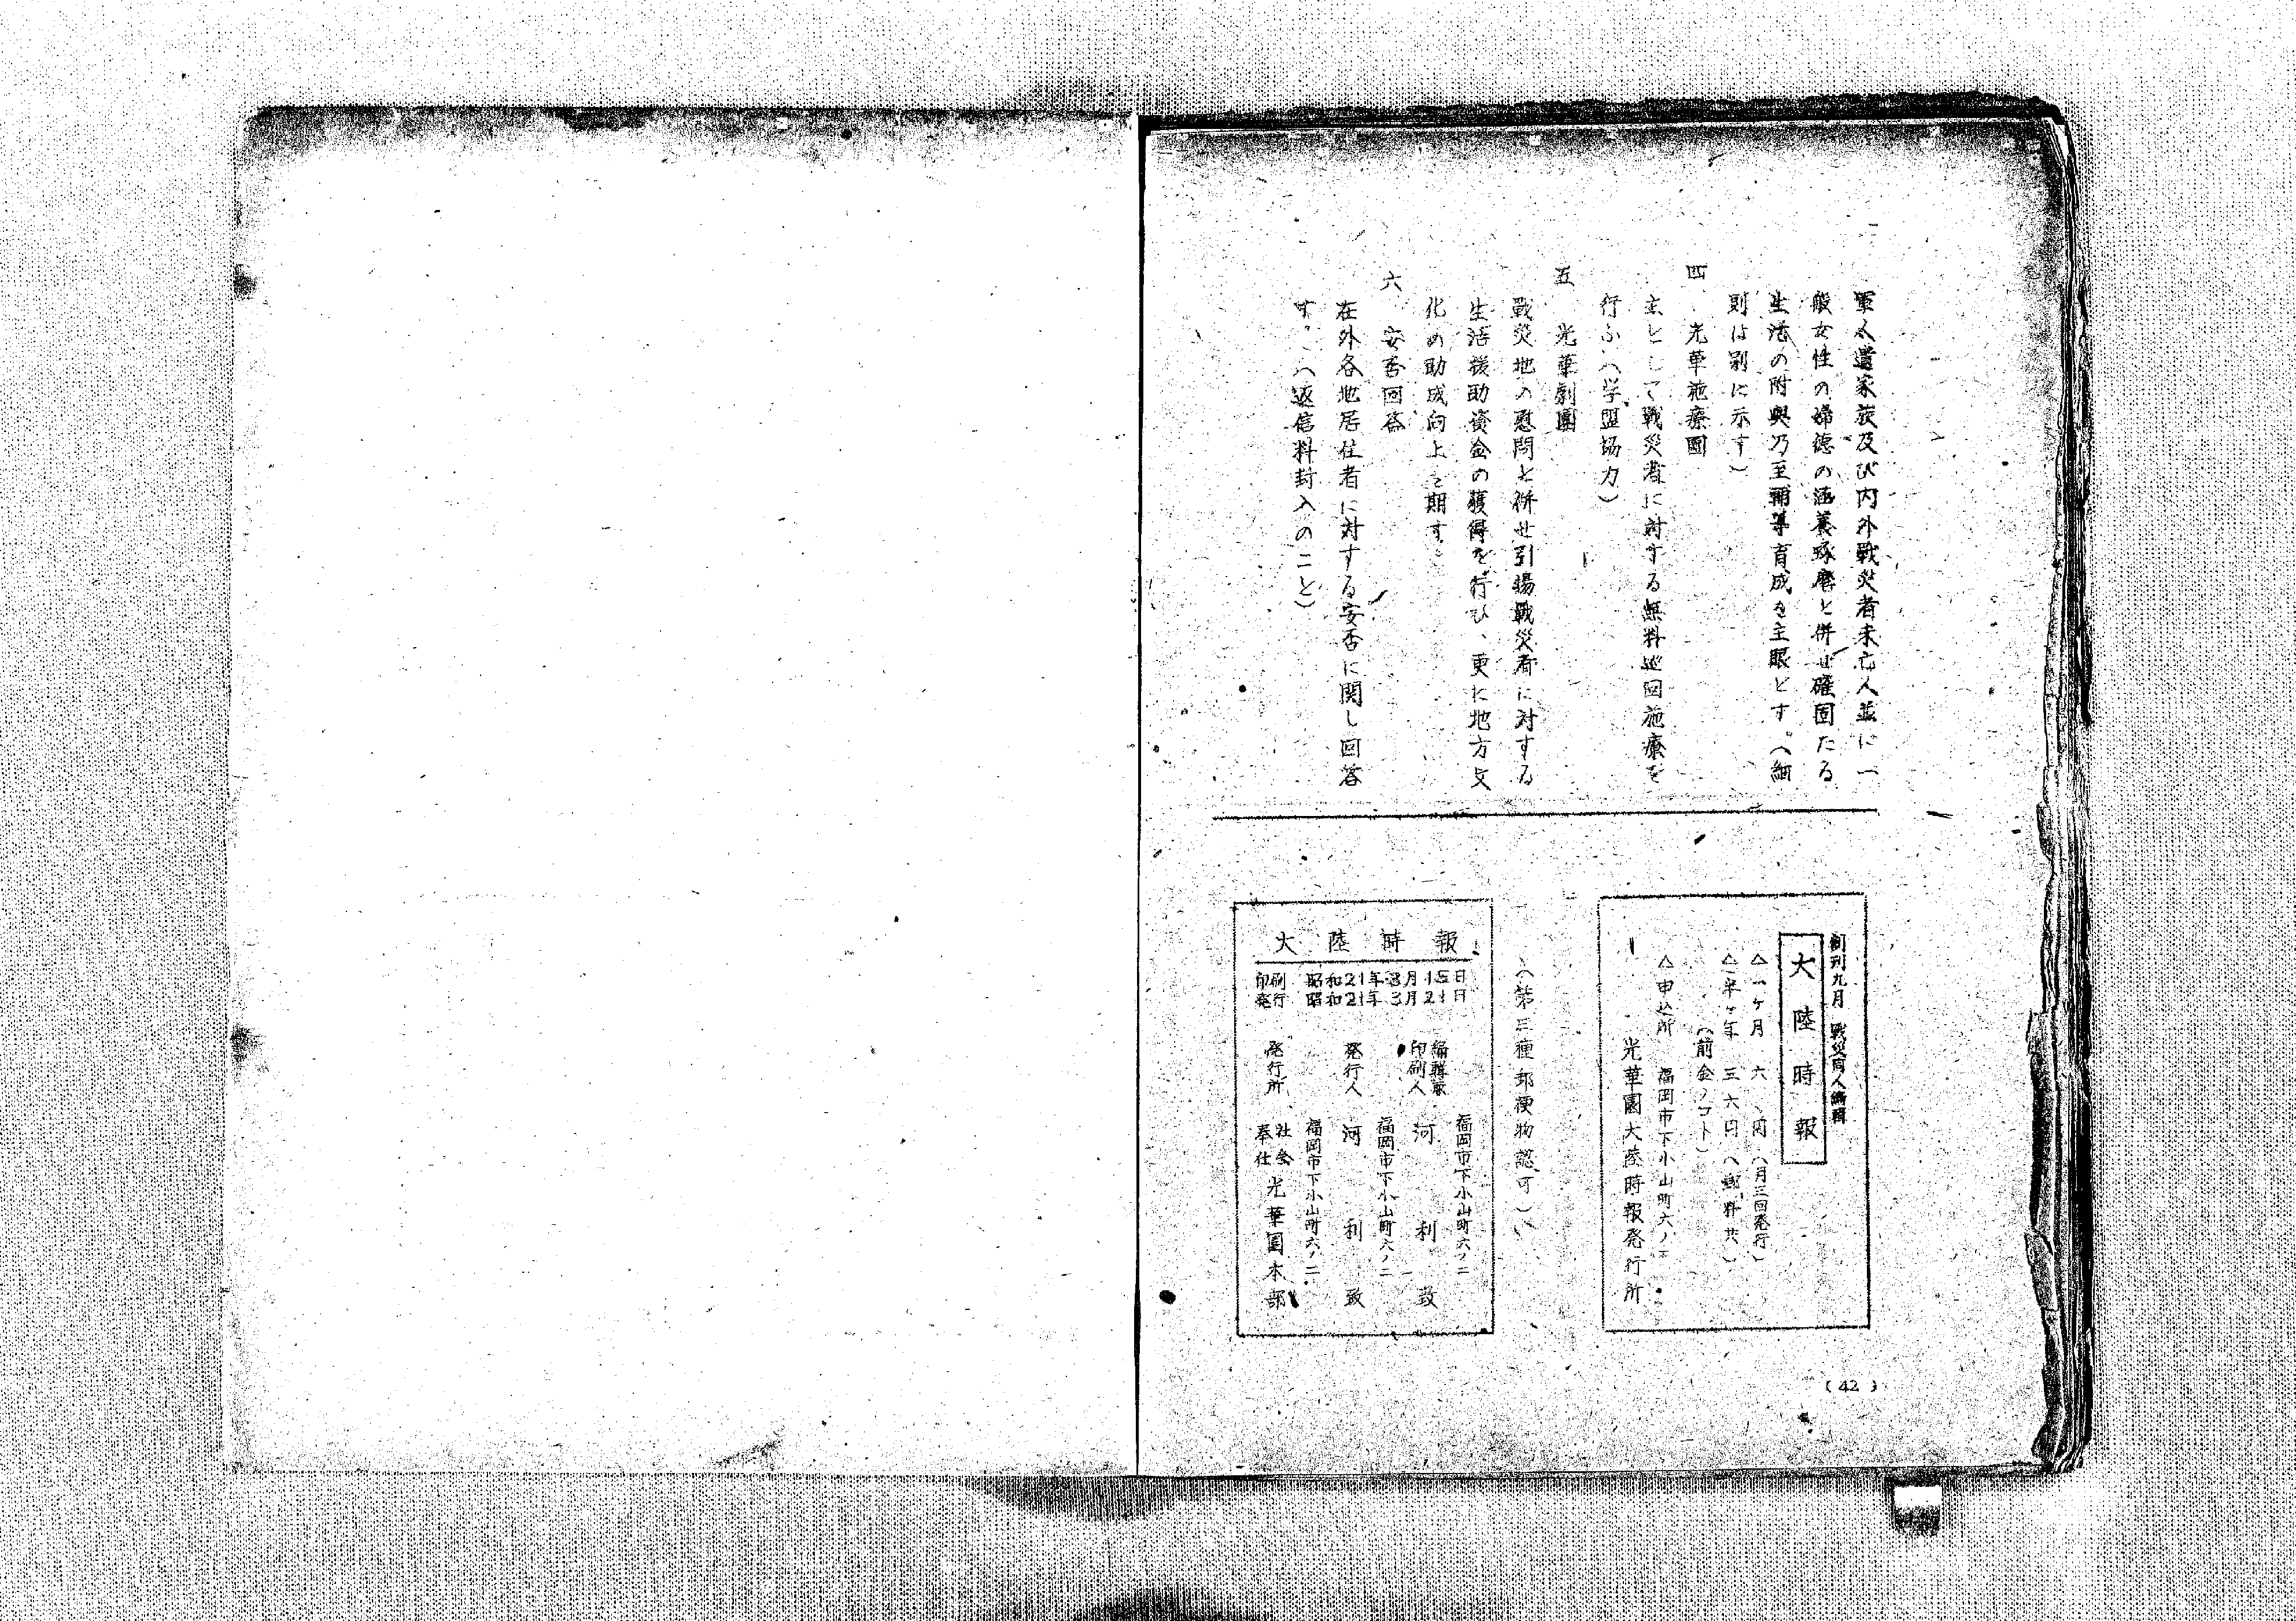 軍人遺家族及び内外戰災者未亡人並に一
般女性の婦徳の涵養琢磨と併せ確固たる
生活の附與乃至輔導育成を主眼とす。(細
則は別に示す)
四、光華施療團
主として戰災者に対する無料巡回施療を
行ふ(学盟協力)
五 光華劇團
戰災地の慰問と併せ引揚戰災者に対する
生活援助資金の獲得を行ひ、更に地方文
化の助成向上を期す。
六 安否回答
在外各地居住者に対する安否に関し回答
す。(返信料封入のこと)
創刊九月 戰災同人編輯
大陸時報
△一ヶ月 六、円(月三回発行)
△半ヶ年 三六円(料共)
(前金ノコト)
△申込所 福岡市下小山町六ノ二
光華園大陸時報発行所
(第三種郵便物認可)
大陸時報
印刷 昭和21年3月15日
発行 昭和21年3月21日
福岡市下小山町六ノ二
編輯兼
印刷人 河利致
福岡市下小山町六ノ二
発行人 河利致
福岡市下小山町六ノ二
発行所 社会奉仕 光華園本部
(42)